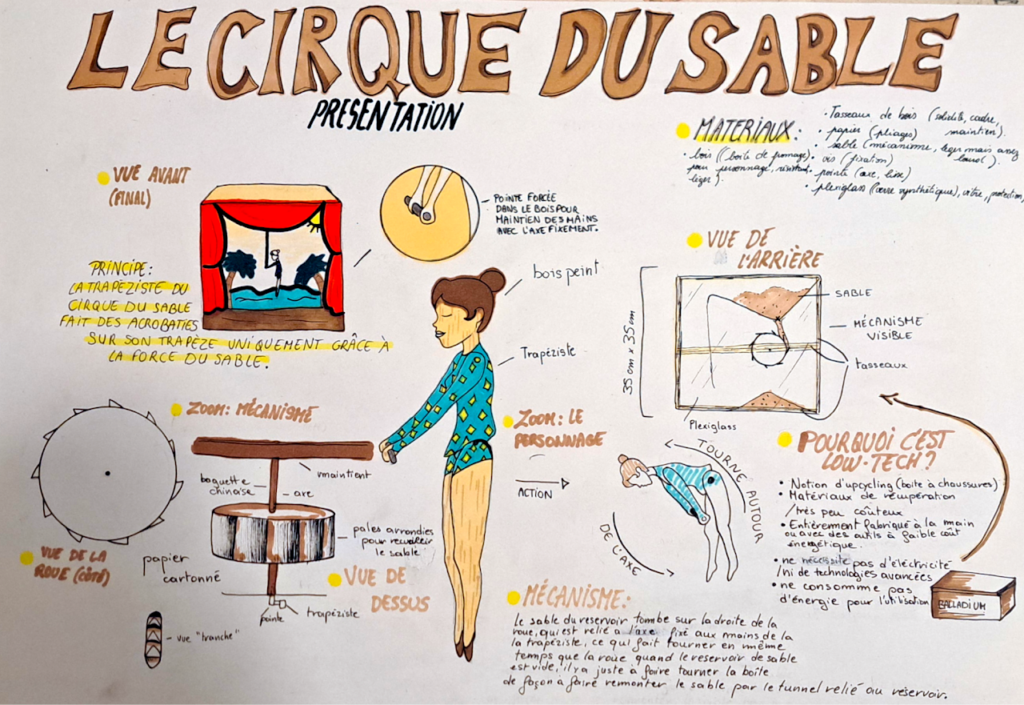 LE CIRQUE DU SABLE
PRESENTATION
MATERIAUX:
• bois (boîte de fromage)
pour personnage, résistant,
léger).
• Tasseaux de bois (solidité, cadre,
maintien).
• papier (pliages)
• sable (mécanisme, léger mais assez
lourd).
• vis (fixation)
• pointe (axe, lixe)
• plexiglass (verre synthétique), vitre, protection,
VUE AVANT
(FINAL)
POINTE FORCÉE
DANS LE BOIS POUR
MAINTIEN DES MAINS
AVEC L'AXE FIXEMENT.
PRINCIPE:
LA TRAPÉZISTE DU
CIRQUE DU SABLE
FAIT DES ACROBATIES
SUR SON TRAPÈZE UNIQUEMENT GRÂCE À
LA FORCE DU SABLE.
bois peint
Trapéziste
VUE DE
L'ARRIÈRE
SABLE
MÉCANISME
VISIBLE
tasseaux
35 cm x 35 cm
Plexiglass
ZOOM: MÉCANISME
maintient
baguette
chinoise
axe
pales arrondies
pour recueillir
le sable
VUE DE LA
ROUE (CÔTÉ)
papier
cartonné
VUE DE
DESSUS
pointe
trapéziste
vue "tranche"
ZOOM: LE
PERSONNAGE
ACTION
TOURNE AUTOUR
DE L'AXE
POURQUOI C'EST
LOW-TECH?
• Notion d'upcycling (boîte à chaussures)
• Matériaux de récupération
/très peu coûteux
• Entièrement fabriqué à la main
ou avec des outils à faible coût
énergétique.
• ne nécessite pas d'électricité
/ni de technologies avancées
• ne consomme pas
d'énergie pour l'utilisation
PALLADIUM
MÉCANISME:
Le sable du reservoir tombe sur la droite de la
roue, qui est relié à l'axe fixé aux mains de
la trapéziste, ce qui fait tourner en même
temps que la roue quand le reservoir de sable
est vide, il y a juste à faire tourner la boîte
de façon à faire remonter le sable par le tunnel relié au réservoir.